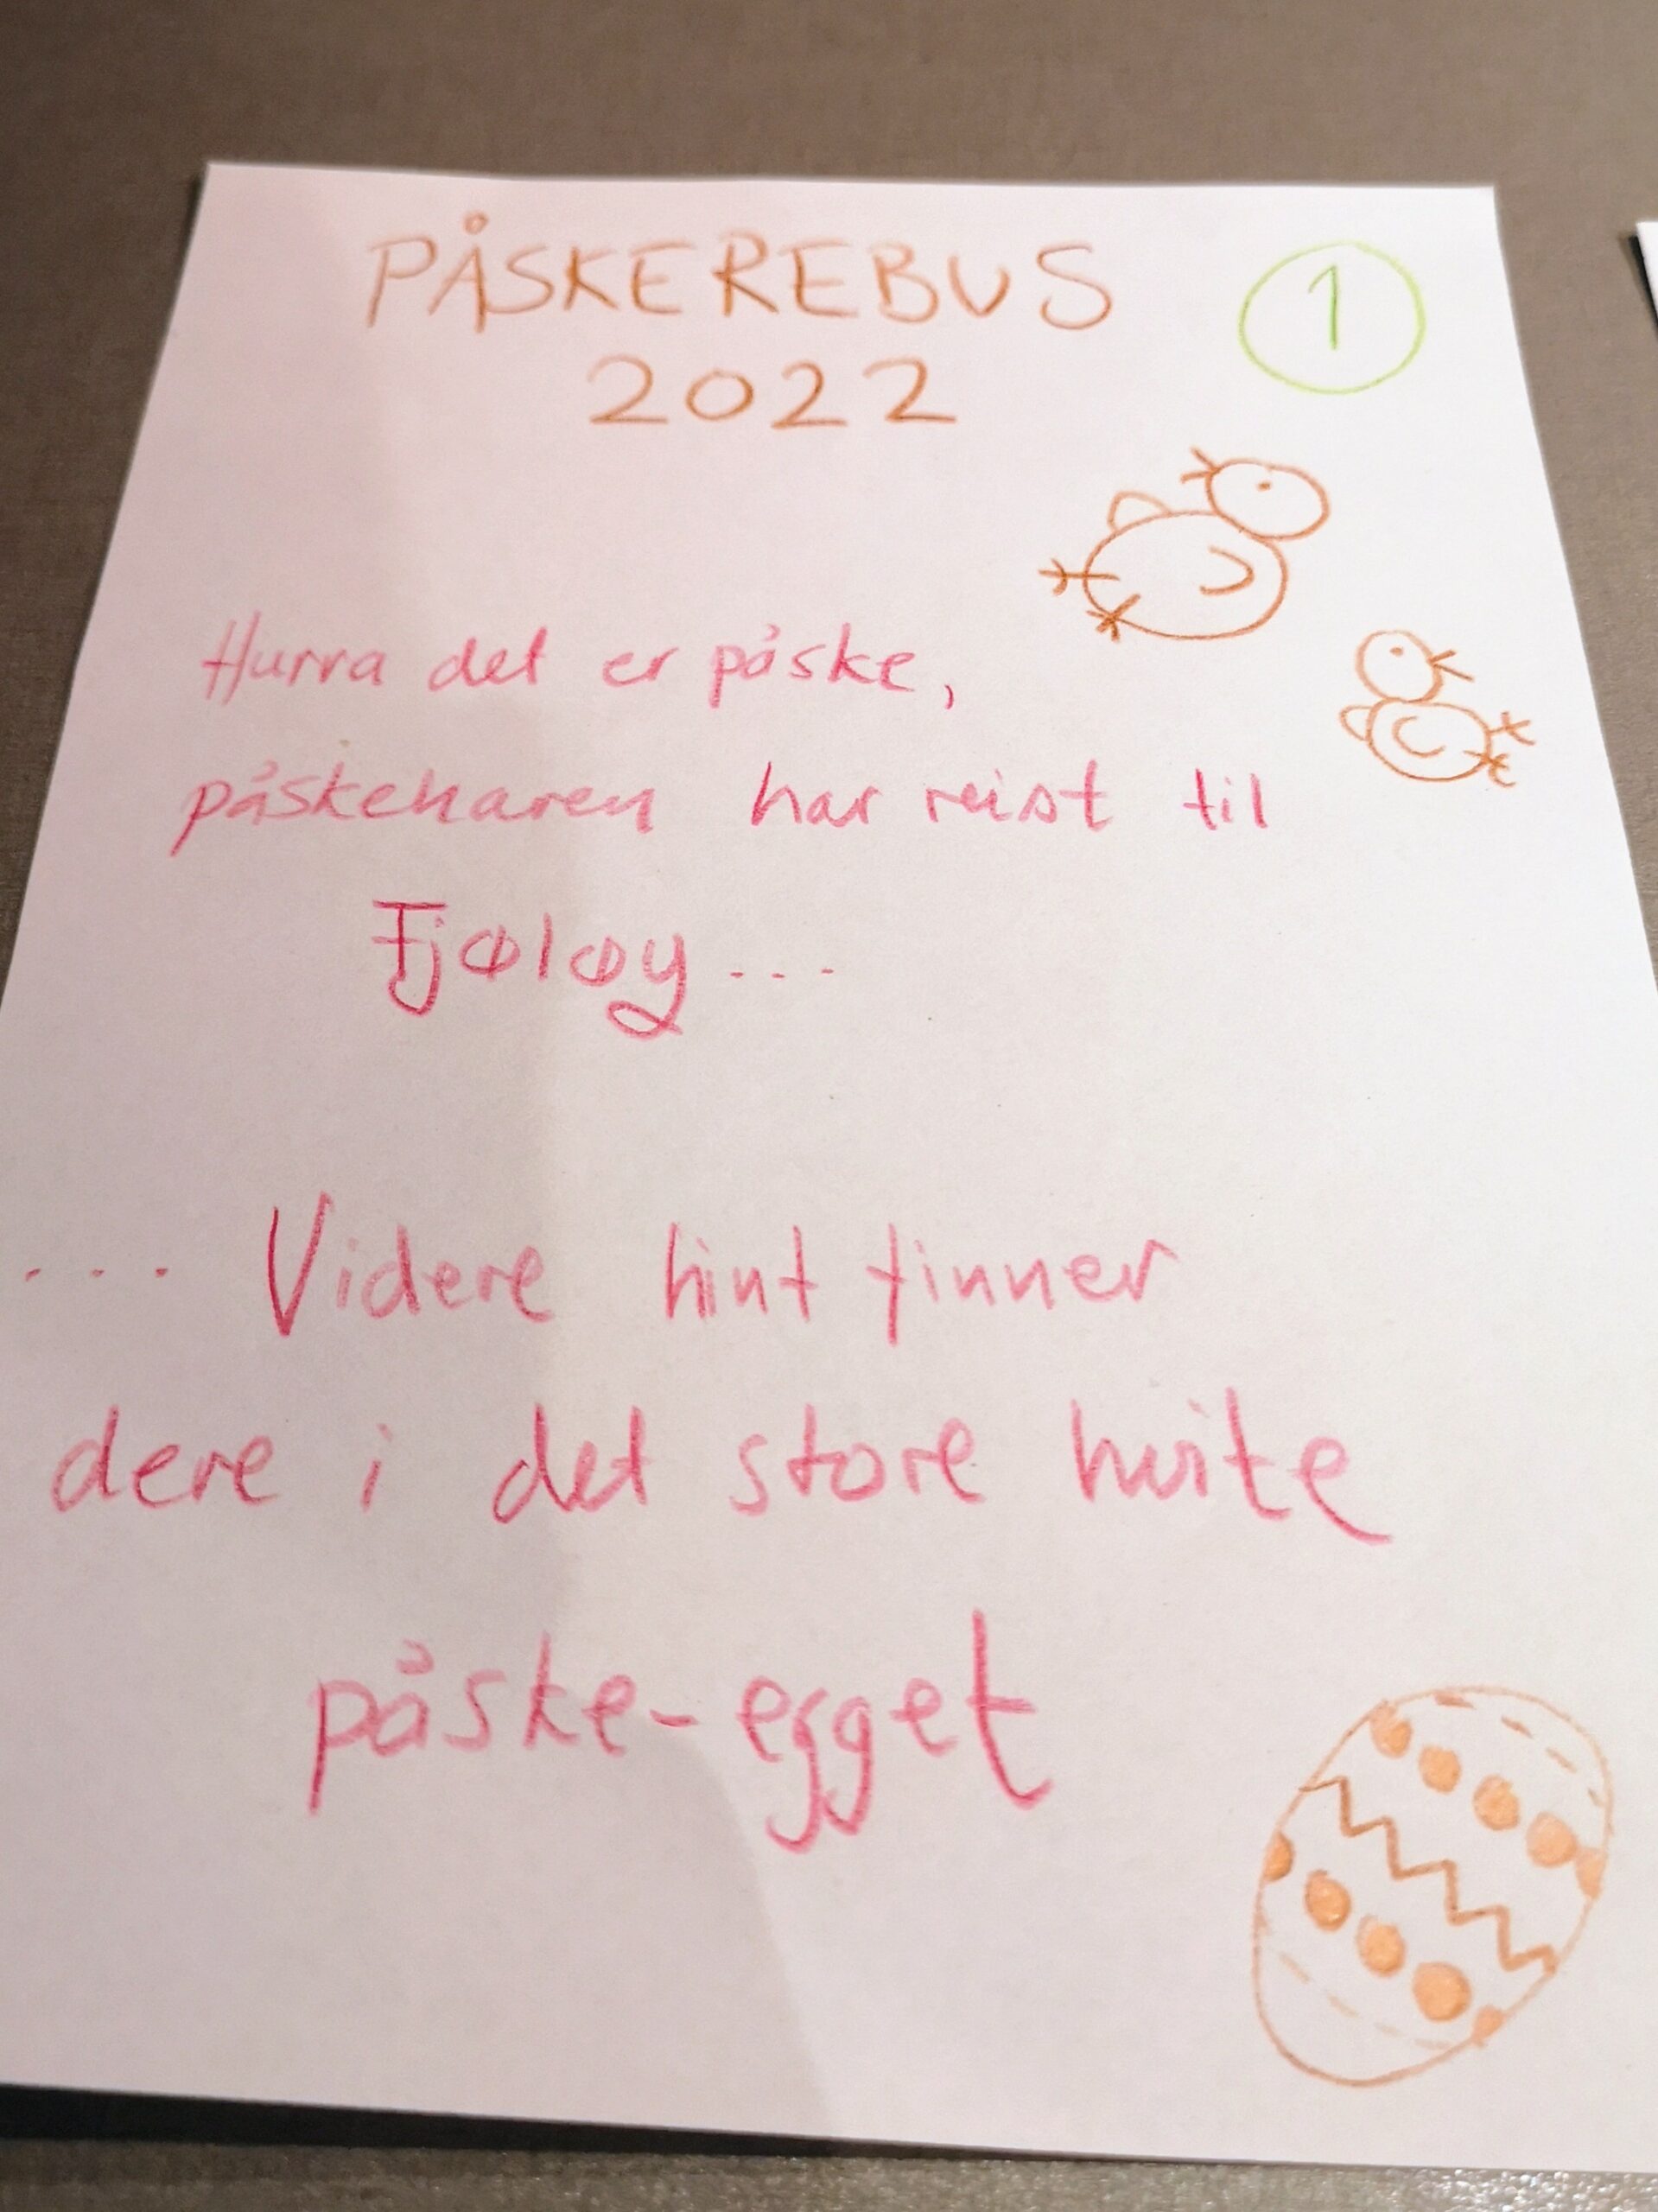 PÅSKEREBUS
2022
1
Hurra det er påske,
påskeharen har reist til
Fjøløy...
... Videre hint finner
dere i det store hvite
påske-egget